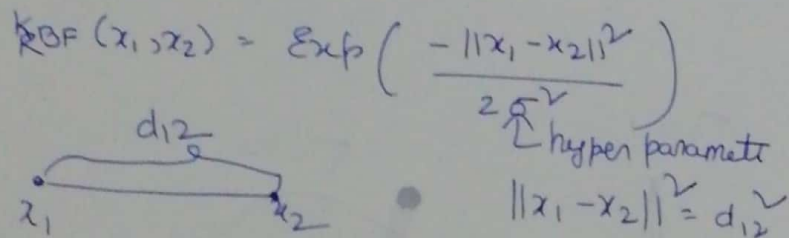 KRBF (x₁, x₂) = Exp( -||x₁ - x₂||² / 2σ² )
hyper paramete
d₁₂
x₁ x₂
||x₁ - x₂||² = d₁₂²